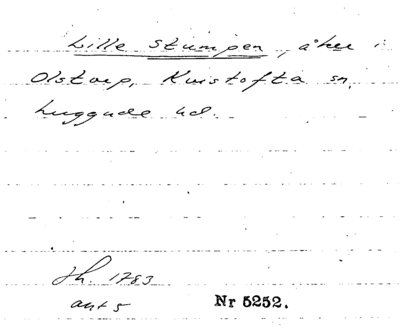 Lille Stumpen, åker i
Olstorp, Kvistofta sn,
Luggude hd.
Jh. 1783
akt 5
Nr 5252.